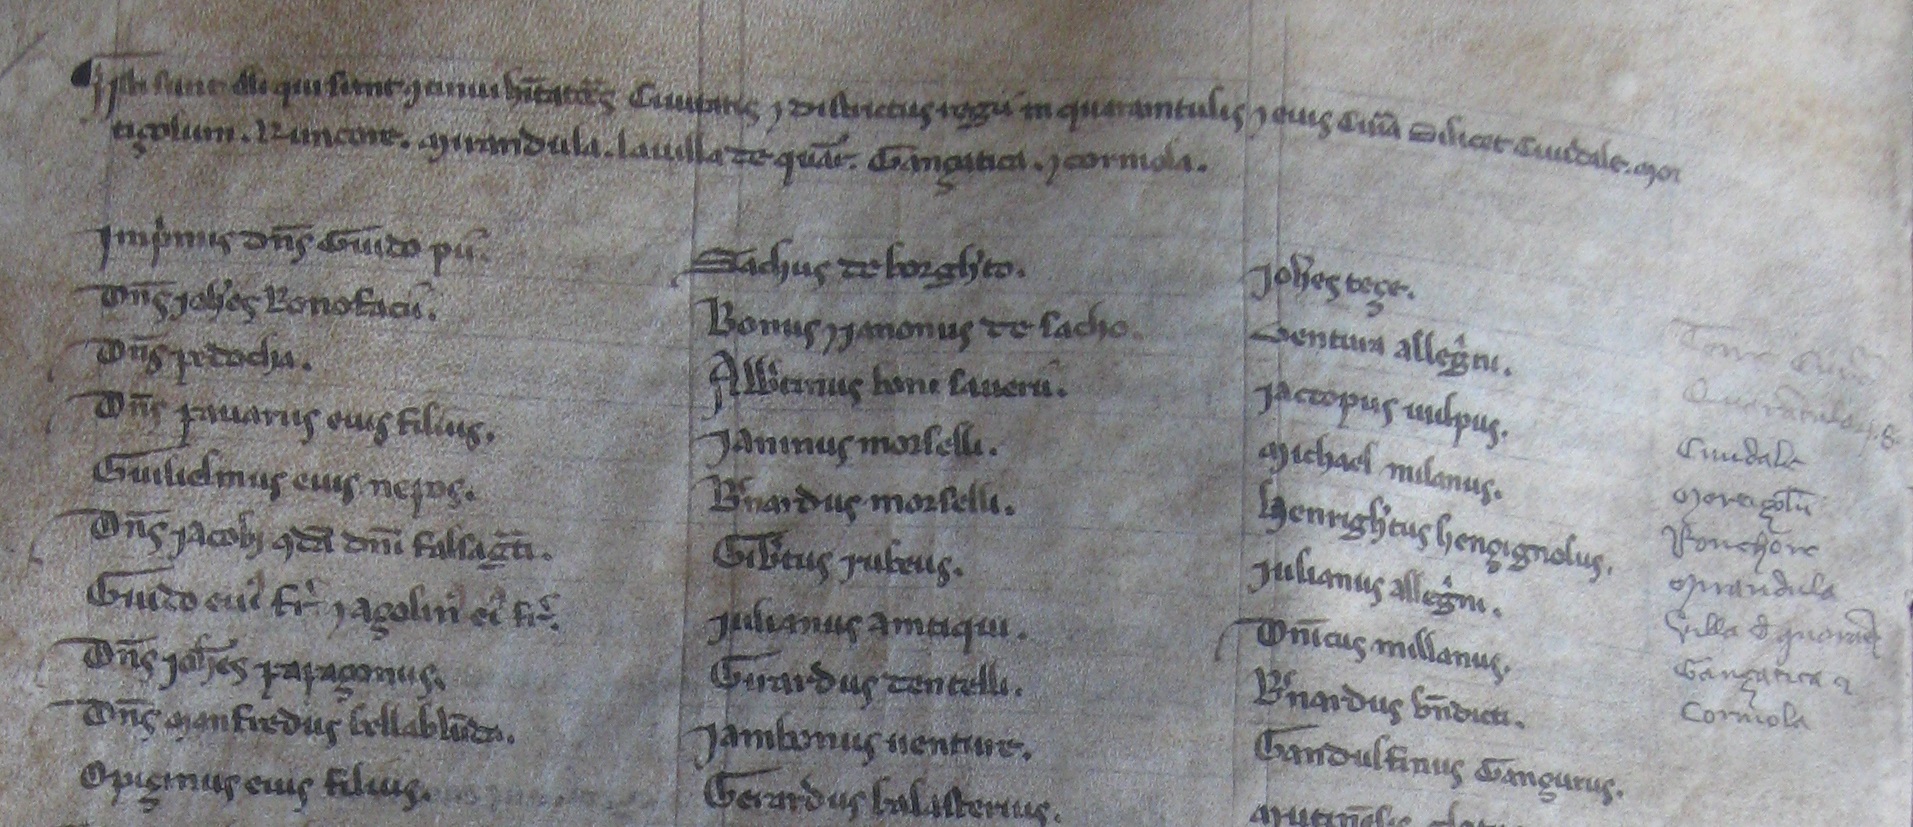 Isti sunt illi qui sunt Civitatis ⁊ districtus regii in quarantulis ⁊ eius Curia silicet Cividale. Mor
tiçolum. Runcore. Mirandula. la villa de quar. Gançatica. ⁊ cormola.
Imprimis dn̄s Guido pii.
Dn̄s Joh̄es Bonofacii.
Dn̄s prdocha.
Dn̄s pavarus eius filius.
Guilielmus eius nepos.
Dn̄s Jacobj qdā dn̄i
Guido fr̄ ⁊ açolin fr̄.
Dn̄s Joh̄es papaçonus.
Dn̄s Manfredus
Opiçinus eius filius.
Sachus de borgh'to.
Bonus ⁊ Janonus de sacho.
Alb'tinus boni saverii.
Janinus morselli.
B'nardus morselli.
Gib'tus rubeus.
Julianus antiqui.
Girardus dentelli.
Jambonus venture.
Gerardus balasterius.
Joh̄es teçe.
Ventura allegri.
Jacopus vulpus.
Michael milanus.
Henrigh'tus hençignolus.
Julianus allegri.
Dn̄icus millanus.
B'nardus bn̄dicti.
Gandulfinus Gançurus.
Cividale
Morticolū
Ronchore
Mirandula
Villa d quarāt
Gançatica ⁊
Cormola